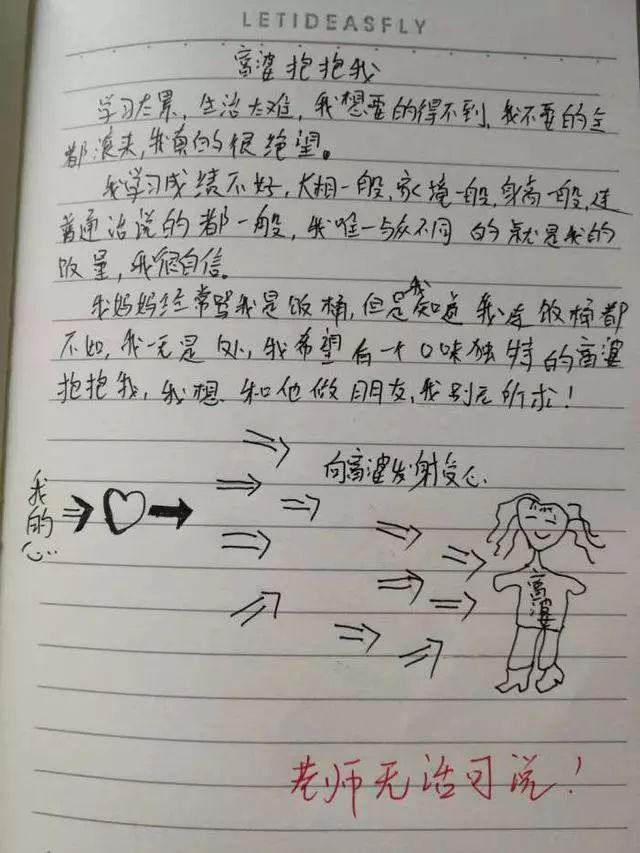 LETIDEASFLY
富婆抱抱我
学习太累,生活太难,我想要的得不到,我不要的全
都滚来,我真的很绝望。
我学习成绩不好,长相一般,家境一般,身高一般,连
普通话说的都一般,我唯一与众不同的就是我的
饭量,我很自信。
我妈妈经常骂我是饭桶,但是我知道我连饭桶都
不如,我一无是处,我希望有一个口味独特的富婆
抱抱我,我想和他做朋友,我别无所求!
向富婆发射爱心
我的心..
富婆
老师无话可说!